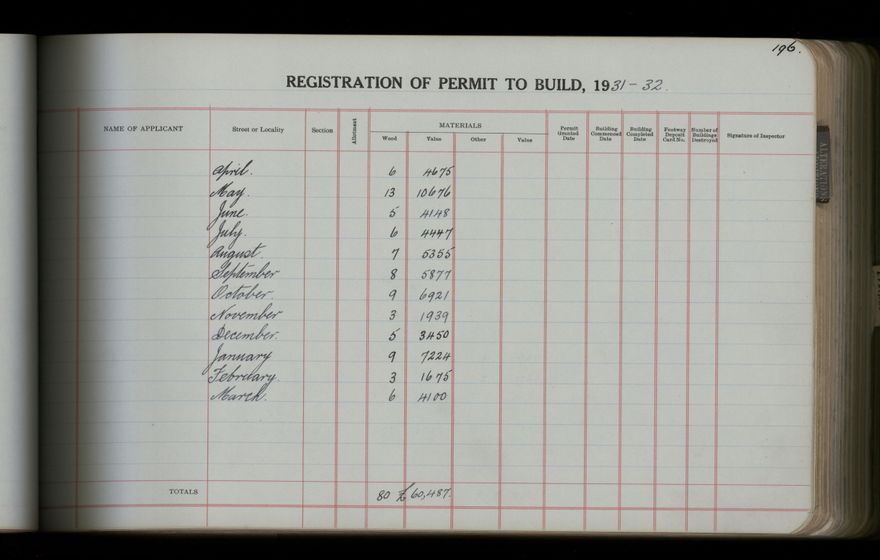 196.
REGISTRATION OF PERMIT TO BUILD, 1931-32.
NAME OF APPLICANT Street or Locality Section Allotment MATERIALS Wood Value Other Value Permit Granted Date Building Commenced Date Building Completed Date Footway Deposit Card No. Number of Buildings Destroyed Signature of Inspector
April. 6 4675
May. 13 10676
June. 5 4148
July. 6 4447
August. 7 5355
September 8 5877
October. 9 6921
November 3 1939
December. 5 3450
January 9 7224
February. 3 1675
March. 6 4100
TOTALS 80 £60,487.
ALTERATIONS